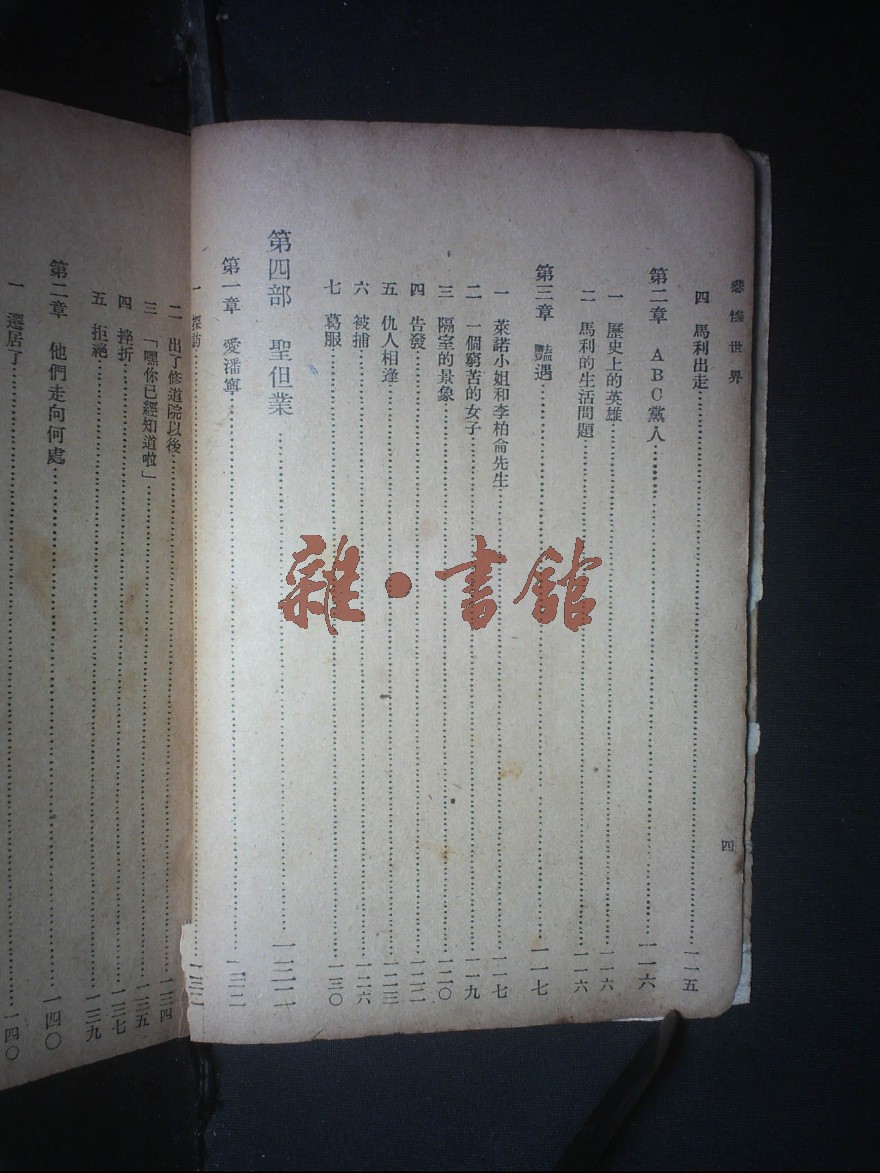 悲慘世界
四
四 馬利出走……一一五
第二章 ABC黨人……一一六
一 歷史上的英雄……一一六
二 馬利的生活問題……一一六
第三章 豔遇……一一七
一 萊諾小姐和李柏侖先生……一一七
二 一個窮苦的女子……一一九
三 隔室的景象……一二〇
四 告發……一二二
五 仇人相逢……一二三
六 被捕……一二六
七 葛服……一三〇
第四部 聖但業……一三二
第一章 愛潘寧……一三二
一 探訪……一三二
二 出了修道院以後……一三四
三 「嘿你已經知道啦」……一三五
四 挫折……一三七
五 拒絕……一三九
第二章 他們走向何處……一四〇
一 遷居了……一四〇
雜·書館